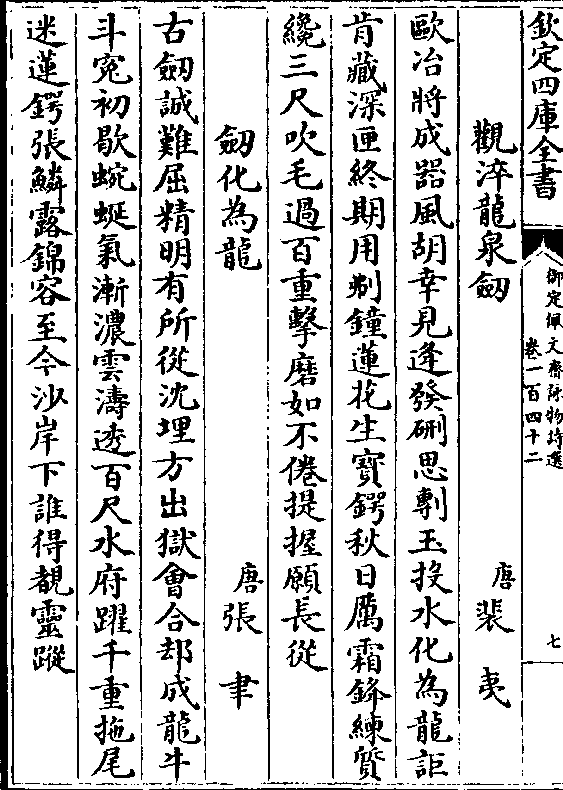 欽定四庫全書
御定佩文齋詠物詩選
卷一百四十二
七
觀淬龍泉劒
唐 裴夷
歐冶將成器風胡幸見逢發硎思剸玉投水化為龍詎
肯藏深匣終期用剸鐘蓮花生寶鍔秋日厲霜鋒練質
纔三尺吹毛過百重擊磨如不倦提握願長從
劒化為龍
唐 張聿
古劒誠難屈精明有所從沈埋方出獄會合却成龍牛
斗寃初歇蜿蜒氣漸濃雲濤透百尺水府躍千重拖尾
迷蓮鍔張鱗露錦容至今沙岸下誰得覩靈蹤